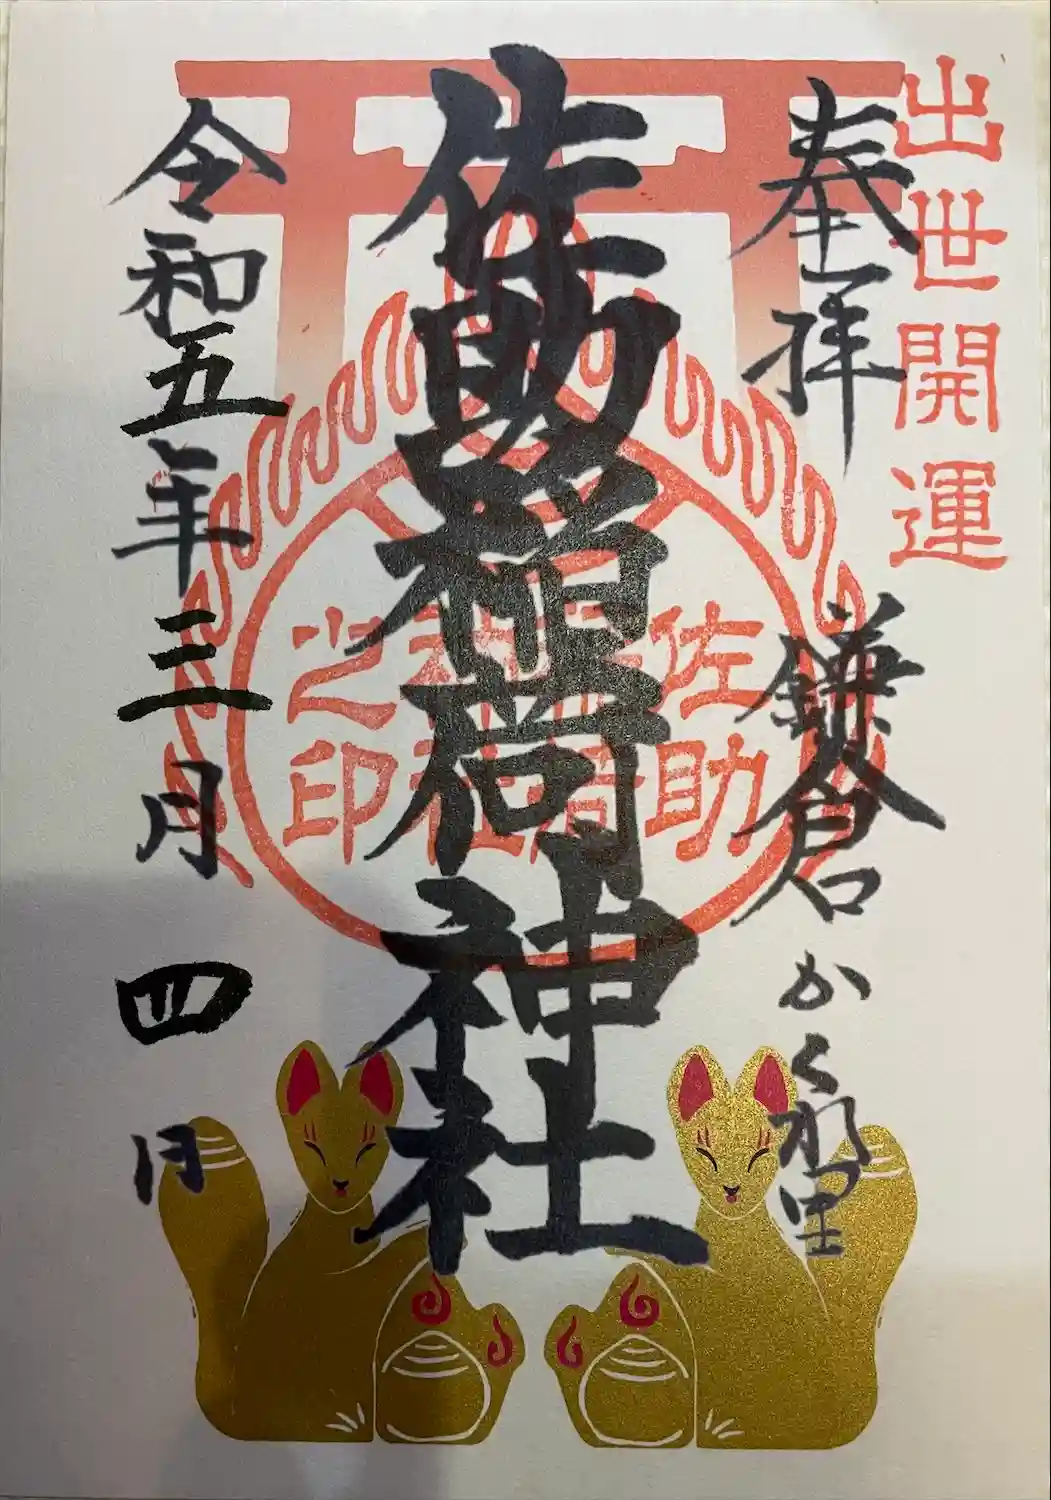 出世開運
奉拝 鎌倉かくれ里
佐助稲荷神社
佐助
稲荷
神社
之印
令和五年三月四日